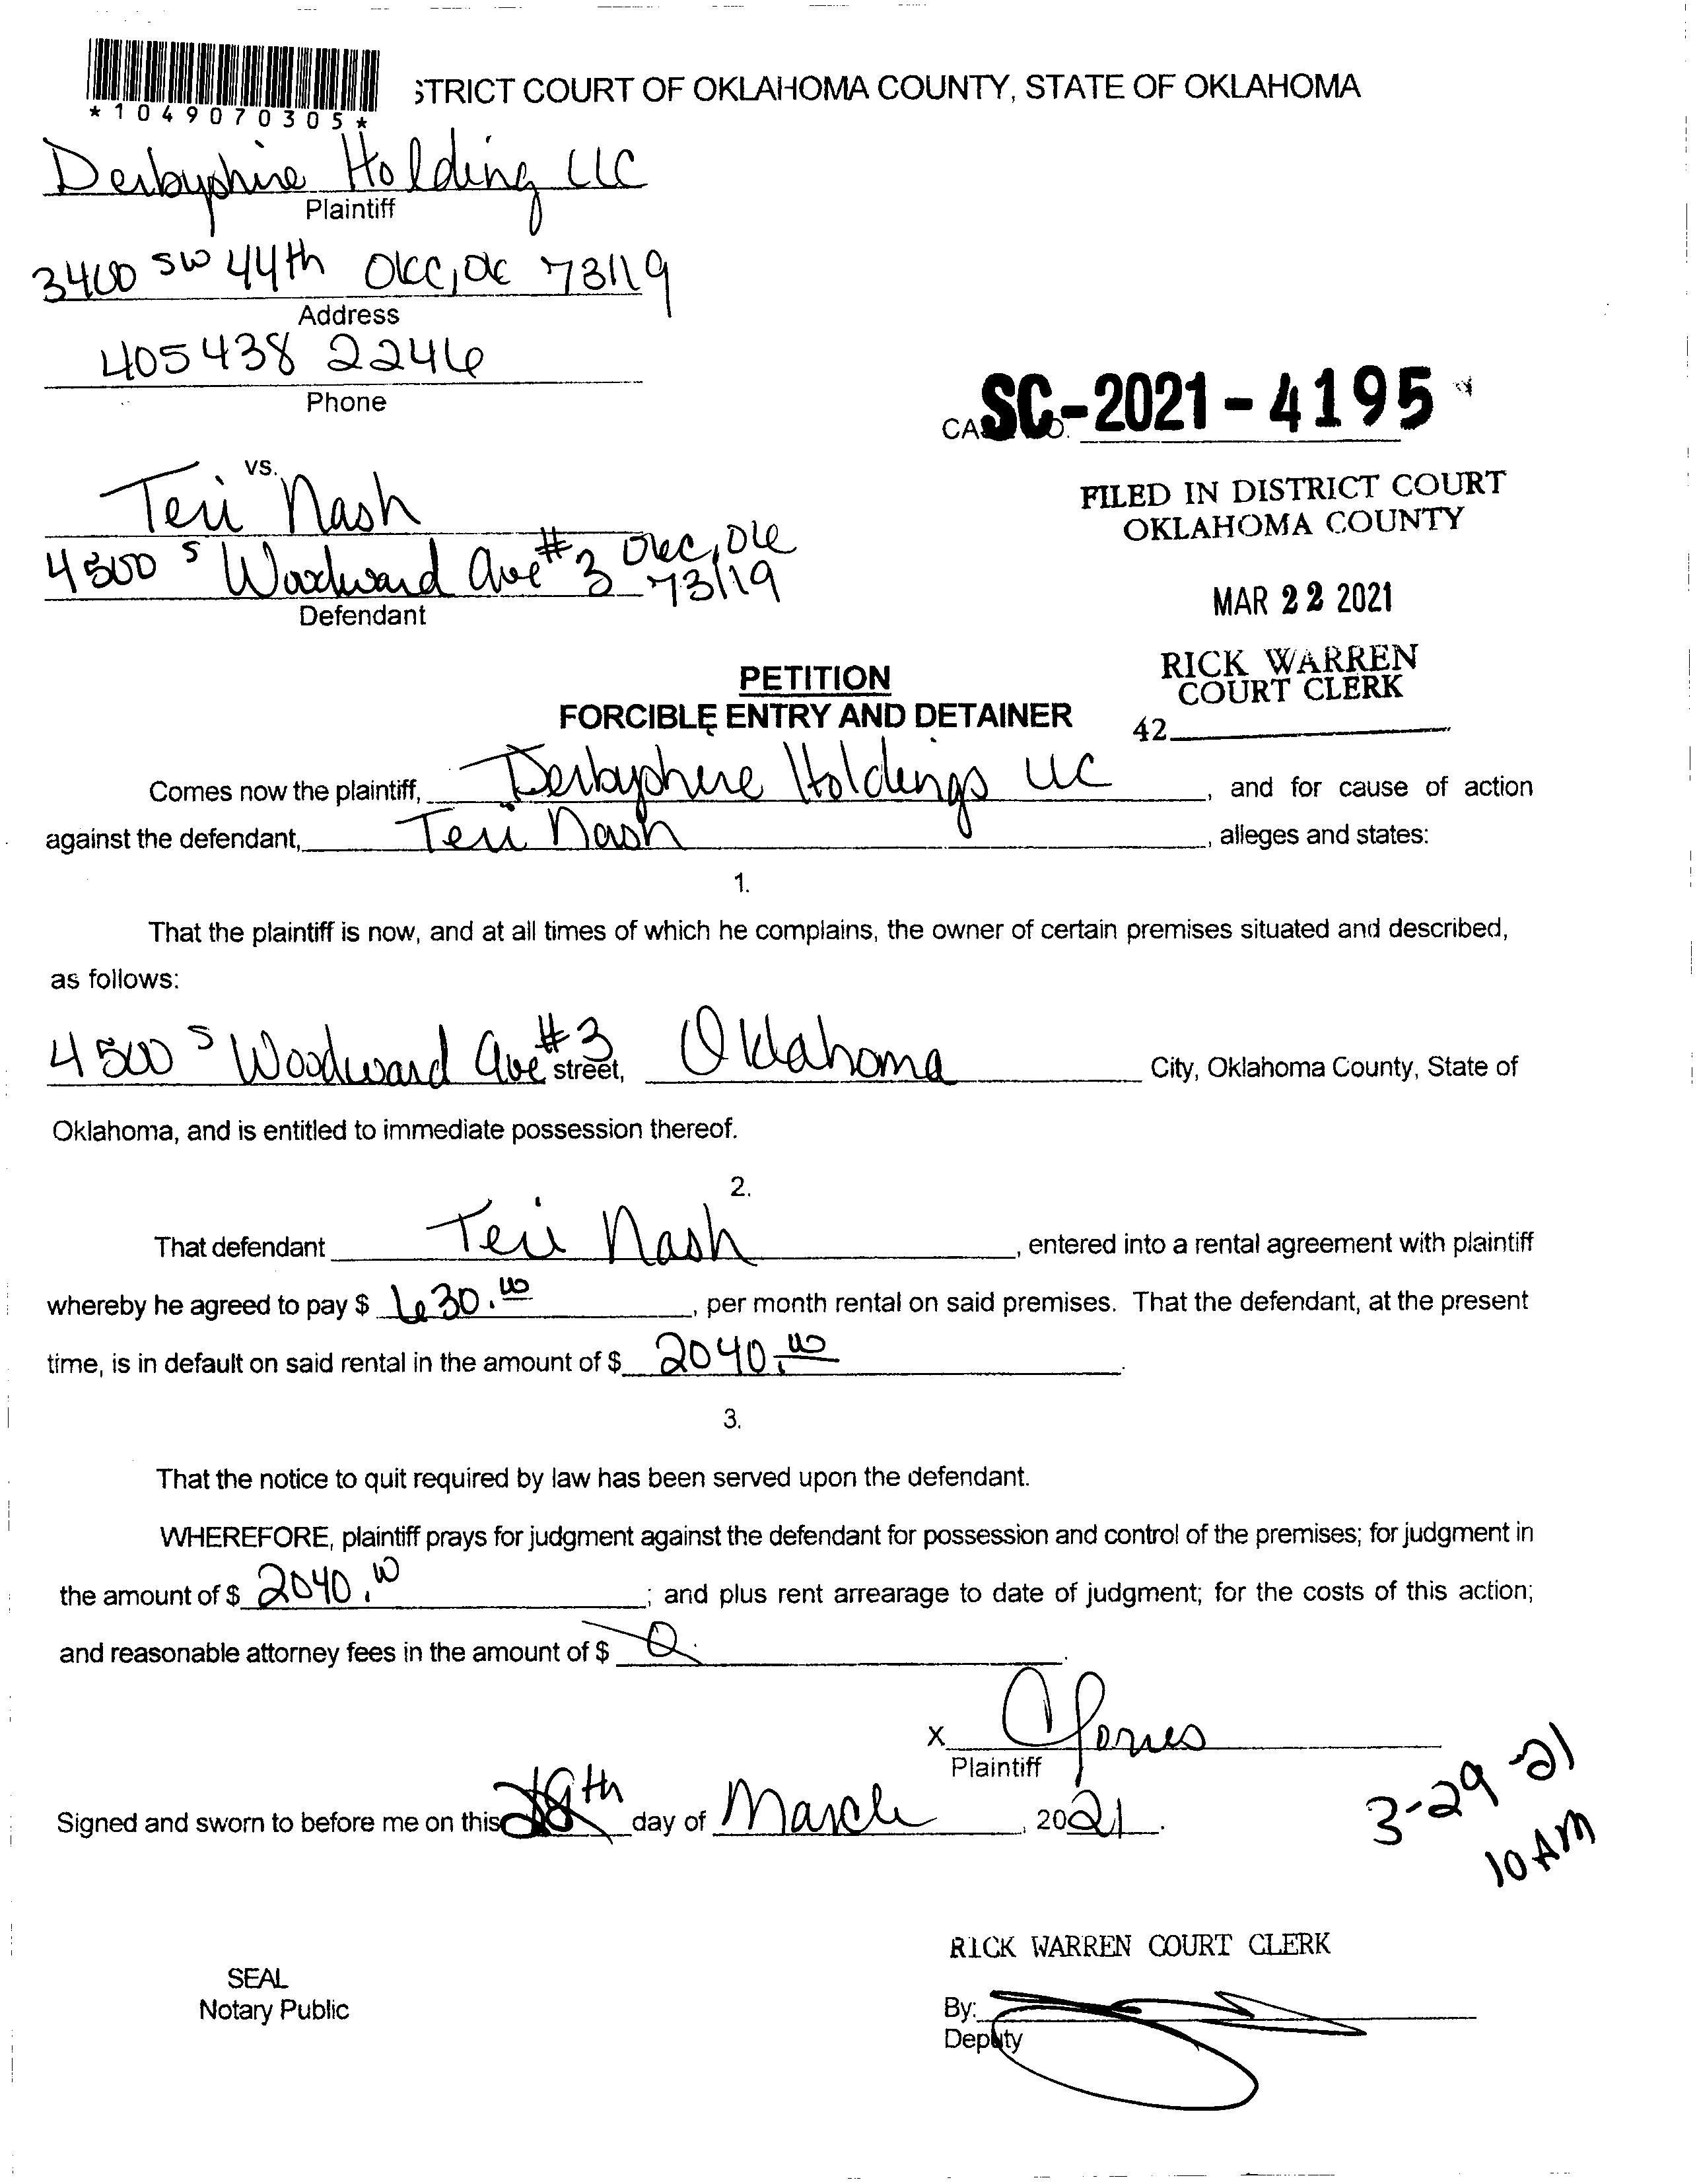 *1049070305*
STRICT COURT OF OKLAHOMA COUNTY, STATE OF OKLAHOMA
Derbyshire Holding LLC
Plaintiff
3400 SW 44th OKC, OK 73119
Address
405 438 2246
Phone
CA SC-2021-4195
vs.
Teri Nash
4500 S Woodward Ave #3 OKC, OK 73119
Defendant
FILED IN DISTRICT COURT
OKLAHOMA COUNTY
MAR 22 2021
RICK WARREN
COURT CLERK
42
PETITION
FORCIBLE ENTRY AND DETAINER
Comes now the plaintiff, Derbyshire Holdings LLC, and for cause of action
against the defendant, Teri Nash, alleges and states:
1.
That the plaintiff is now, and at all times of which he complains, the owner of certain premises situated and described,
as follows:
4500 S Woodward Ave #3 street, Oklahoma City, Oklahoma County, State of
Oklahoma, and is entitled to immediate possession thereof.
2.
That defendant Teri Nash, entered into a rental agreement with plaintiff
whereby he agreed to pay $ 630.00, per month rental on said premises. That the defendant, at the present
time, is in default on said rental in the amount of $ 2040.00.
3.
That the notice to quit required by law has been served upon the defendant.
WHEREFORE, plaintiff prays for judgment against the defendant for possession and control of the premises; for judgment in
the amount of $ 2040.00; and plus rent arrearage to date of judgment; for the costs of this action;
and reasonable attorney fees in the amount of $ 0.
X
Plaintiff
Signed and sworn to before me on this day of March, 2021.
3-29-21
10 AM
RICK WARREN COURT CLERK
SEAL
Notary Public
By:
Deputy